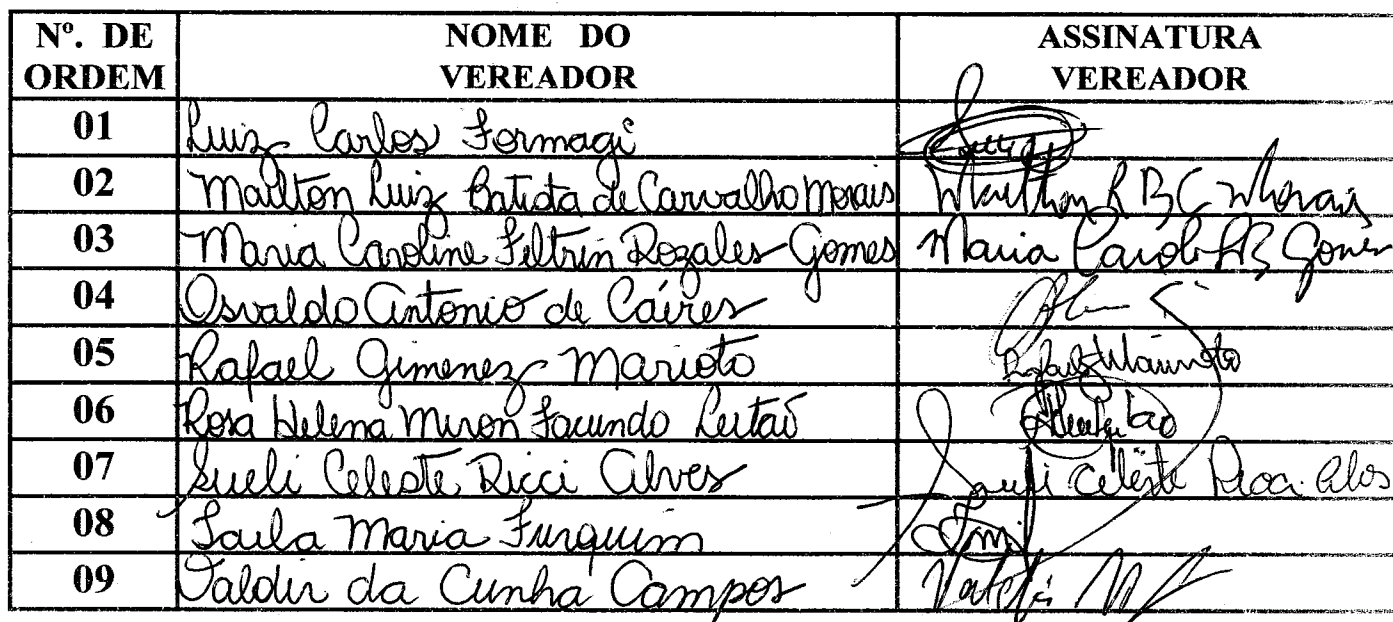 Nº. DE ORDEM NOME DO VEREADOR ASSINATURA VEREADOR
01 Luiz Carlos Formagi
02 Mailton Luiz Batista de Carvalho Morais Mailton L B C Morais
03 Maria Caroline Feltrin Rozales Gomes Maria Carol Gomes
04 Osvaldo Antonio de Caires
05 Rafael Gimenez Marioto Rafael Marioto
06 Rosa Helena Miron Facundo Leitão
07 Sueli Celeste Ricci Alves Sueli Celeste Ricci Alves
08 Saila Maria Furquim
09 Valdir da Cunha Campos